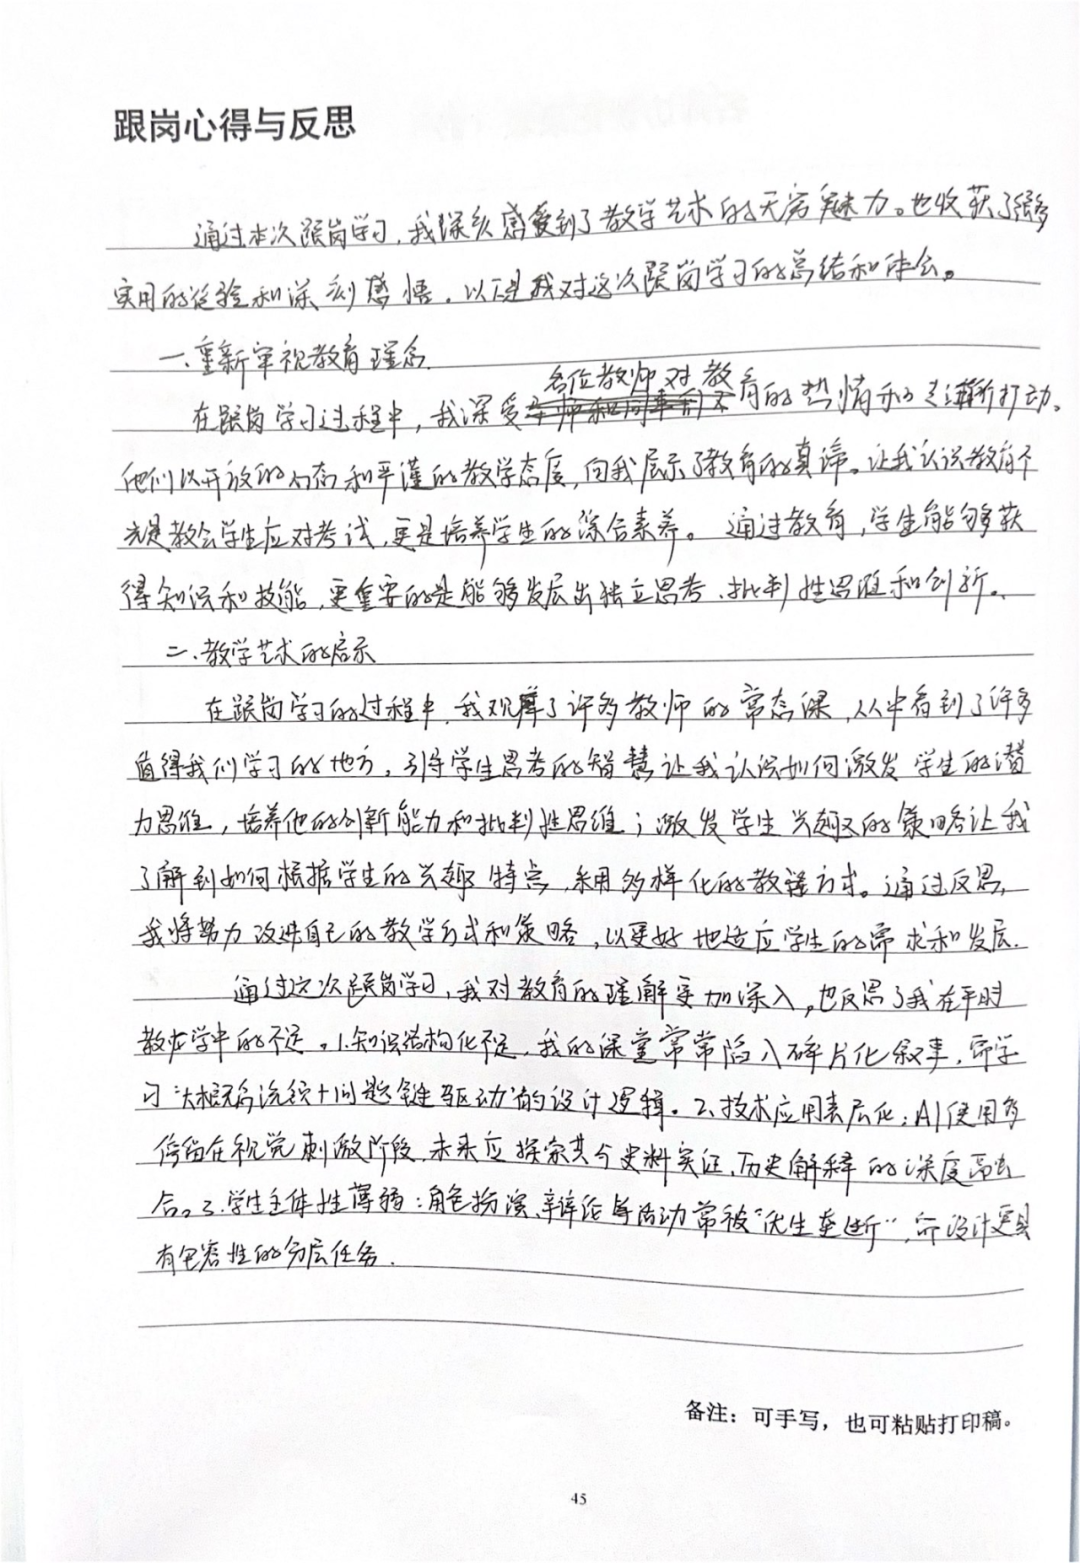 跟岗心得与反思
通过本次跟岗学习,我深刻感受到了教学艺术的无穷魅力。也收获了很多
实用的经验和深刻感悟,以下是我对这次跟岗学习的总结和体会。
一、重新审视教育理念.
各位教师对教
在跟岗学习过程中,我深受育的热情和专注所打动。
他们以开放的心态和严谨的教学态度,向我展示了教育的真谛。让我认识教育不
光是教会学生应对考试,更是培养学生的综合素养。通过教育,学生能够获
得知识和技能,更重要的是能够发展出独立思考、批判性思维和创新。
二、教学艺术的启示
在跟岗学习的过程中,我观摩了许多教师的常态课,从中看到了许多
值得我们学习的地方,引导学生思考的智慧让我认识如何激发学生的潜
力思维,培养他的创新能力和批判性思维;激发学生兴趣的策略让我
了解到如何根据学生的兴趣特点,采用多样化的教学方式。通过反思,
我将努力改进自己的教学方式和策略,以更好地适应学生的需求和发展.
通过这次跟岗学习,我对教育的理解更加深入,也反思了我在平时
教学中的不足。1.知识结构化不足,我的课堂常常陷入碎片化叙事,需学
习"大概念统领+问题链驱动"的设计逻辑。2.技术应用表层化:AI使用多
停留在视觉刺激阶段,未来应探索其与史料实证、历史解释的深度融
合。3.学生主体性薄弱:角色扮演、辩论等活动常被"优生垄断",需设计更具
有包容性的分层任务.
备注:可手写,也可粘贴打印稿。
45